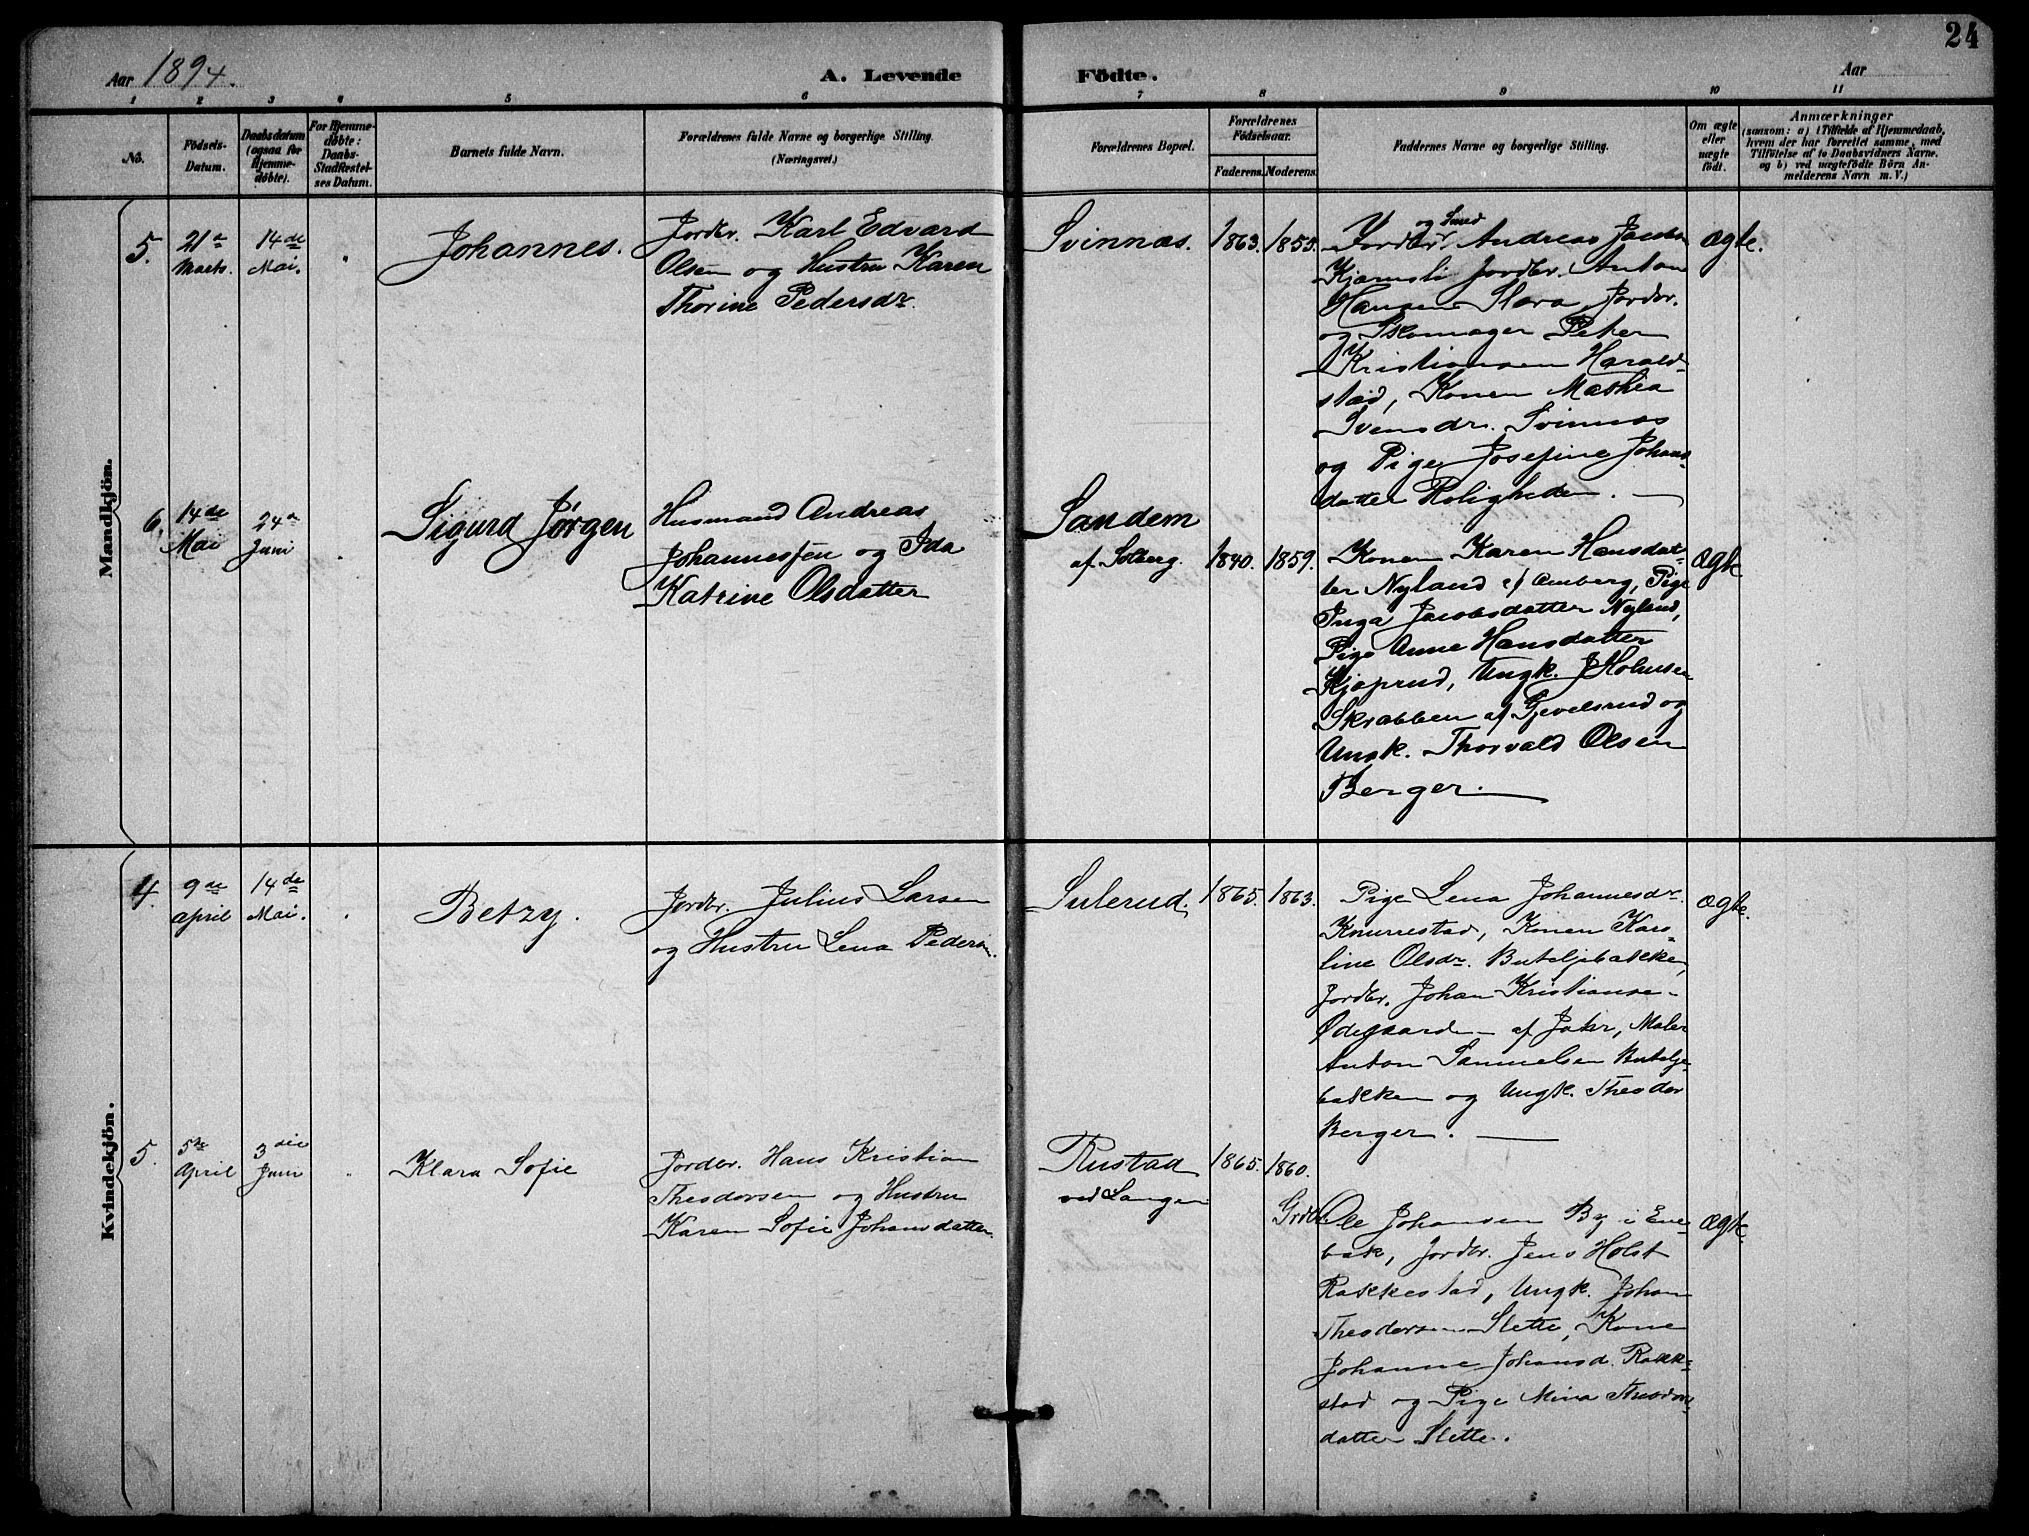 24
Aar 1894.
A. Levende Födte.
Aar
1 2 3 4 5 6 7 8 9 10 11
No.
Födsels-
Datum.
Daabsdatum
(ogsaa for
Hjemme-
døbte).
For Hjemme-
døbte:
Daabs-
Stadfæstel-
ses Datum.
Barnets fulde Navn.
Forældrenes fulde Navne og borgerlige Stilling.
(Næringsvei.)
Forældrenes Bopæl.
Forældrenes
Födselsaar.
Faderens. Moderens.
Faddernes Navne og borgerlige Stilling.
Om ægte
eller
uægte
födt.
Anmærkninger
(saasom: a) i Tilfælde af Hjemmedaab,
hvem der har forrettet samme, med
Tilföielse af to Daabsvidners Navne.
og b) ved uægtefödte Börn An-
melderens Navn m. V.)
Mandkjön.
5.
21de
Marts.
14de
Mai.
"
Johannes.
Jordbr. Karl Edvard
Olsen og Hustru Karen
Thorine Pedersdr
Svinnæs.
1863. 1855.
og Smed
Jordbr. Andreas Jacobs
Kjærnsli Jordbr. Anton
Hansen Slora, Jordbr.
og Skomager Peter
Kristiansen Harald-
stad, Konen Mathea
Svensdr. Svinnæs
og Pige Josefine Johans-
datter Roligheden.
ægte.
6.
14de
Mai
24de
Juni
Sigurd Jørgen
Husmand Andreas
Johannessen og Ida
Katrine Olsdatter
Sandem
af Solberg.
1840. 1859.
Konen Karen Hansdat-
ter Nyland af Amberg, Pige
Inga Jacobsdatter Nyland,
Pige Anne Hansdatter
Kjøprud, Ungk. J Holmsen
Skrabben af Gjevelsrud og
Ungk. Thorvald Olsen
Berger.
ægte
Kvindekjön.
4.
9de
April
14de
Mai.
Betzy.
Jordbr. Julius Larsen
og Hustru Lena Peders
Sulerud.
1865. 1863.
Pige Lena Johannesdr.
Knurrestad, Konen Karo-
line Olsdr. Buteljebakken,
Jordbr. Johan Kristianse-
Ødegaarden af Jahr, Maler
Anton Samuelsen Butelje-
bakken og Ungk. Theodor
Berger.
ægte.
5.
5te
April
3die
Juni
Klara Sofie
Jordbr. Hans Kristian
Theodorsen og Hustru
Karen Sofie Johansdatter.
Rustad
ved Langen
1865. 1860.
Grdbr. Ole Johansen By i Ene-
bak, Jordbr. Jens Holst
Rakkestad, Ungk. Johan
Theodorsen Slette, Kone
Johanne Johansd. Rakke-
stad og Pige Mina Theodors-
datter Slette.
ægte.